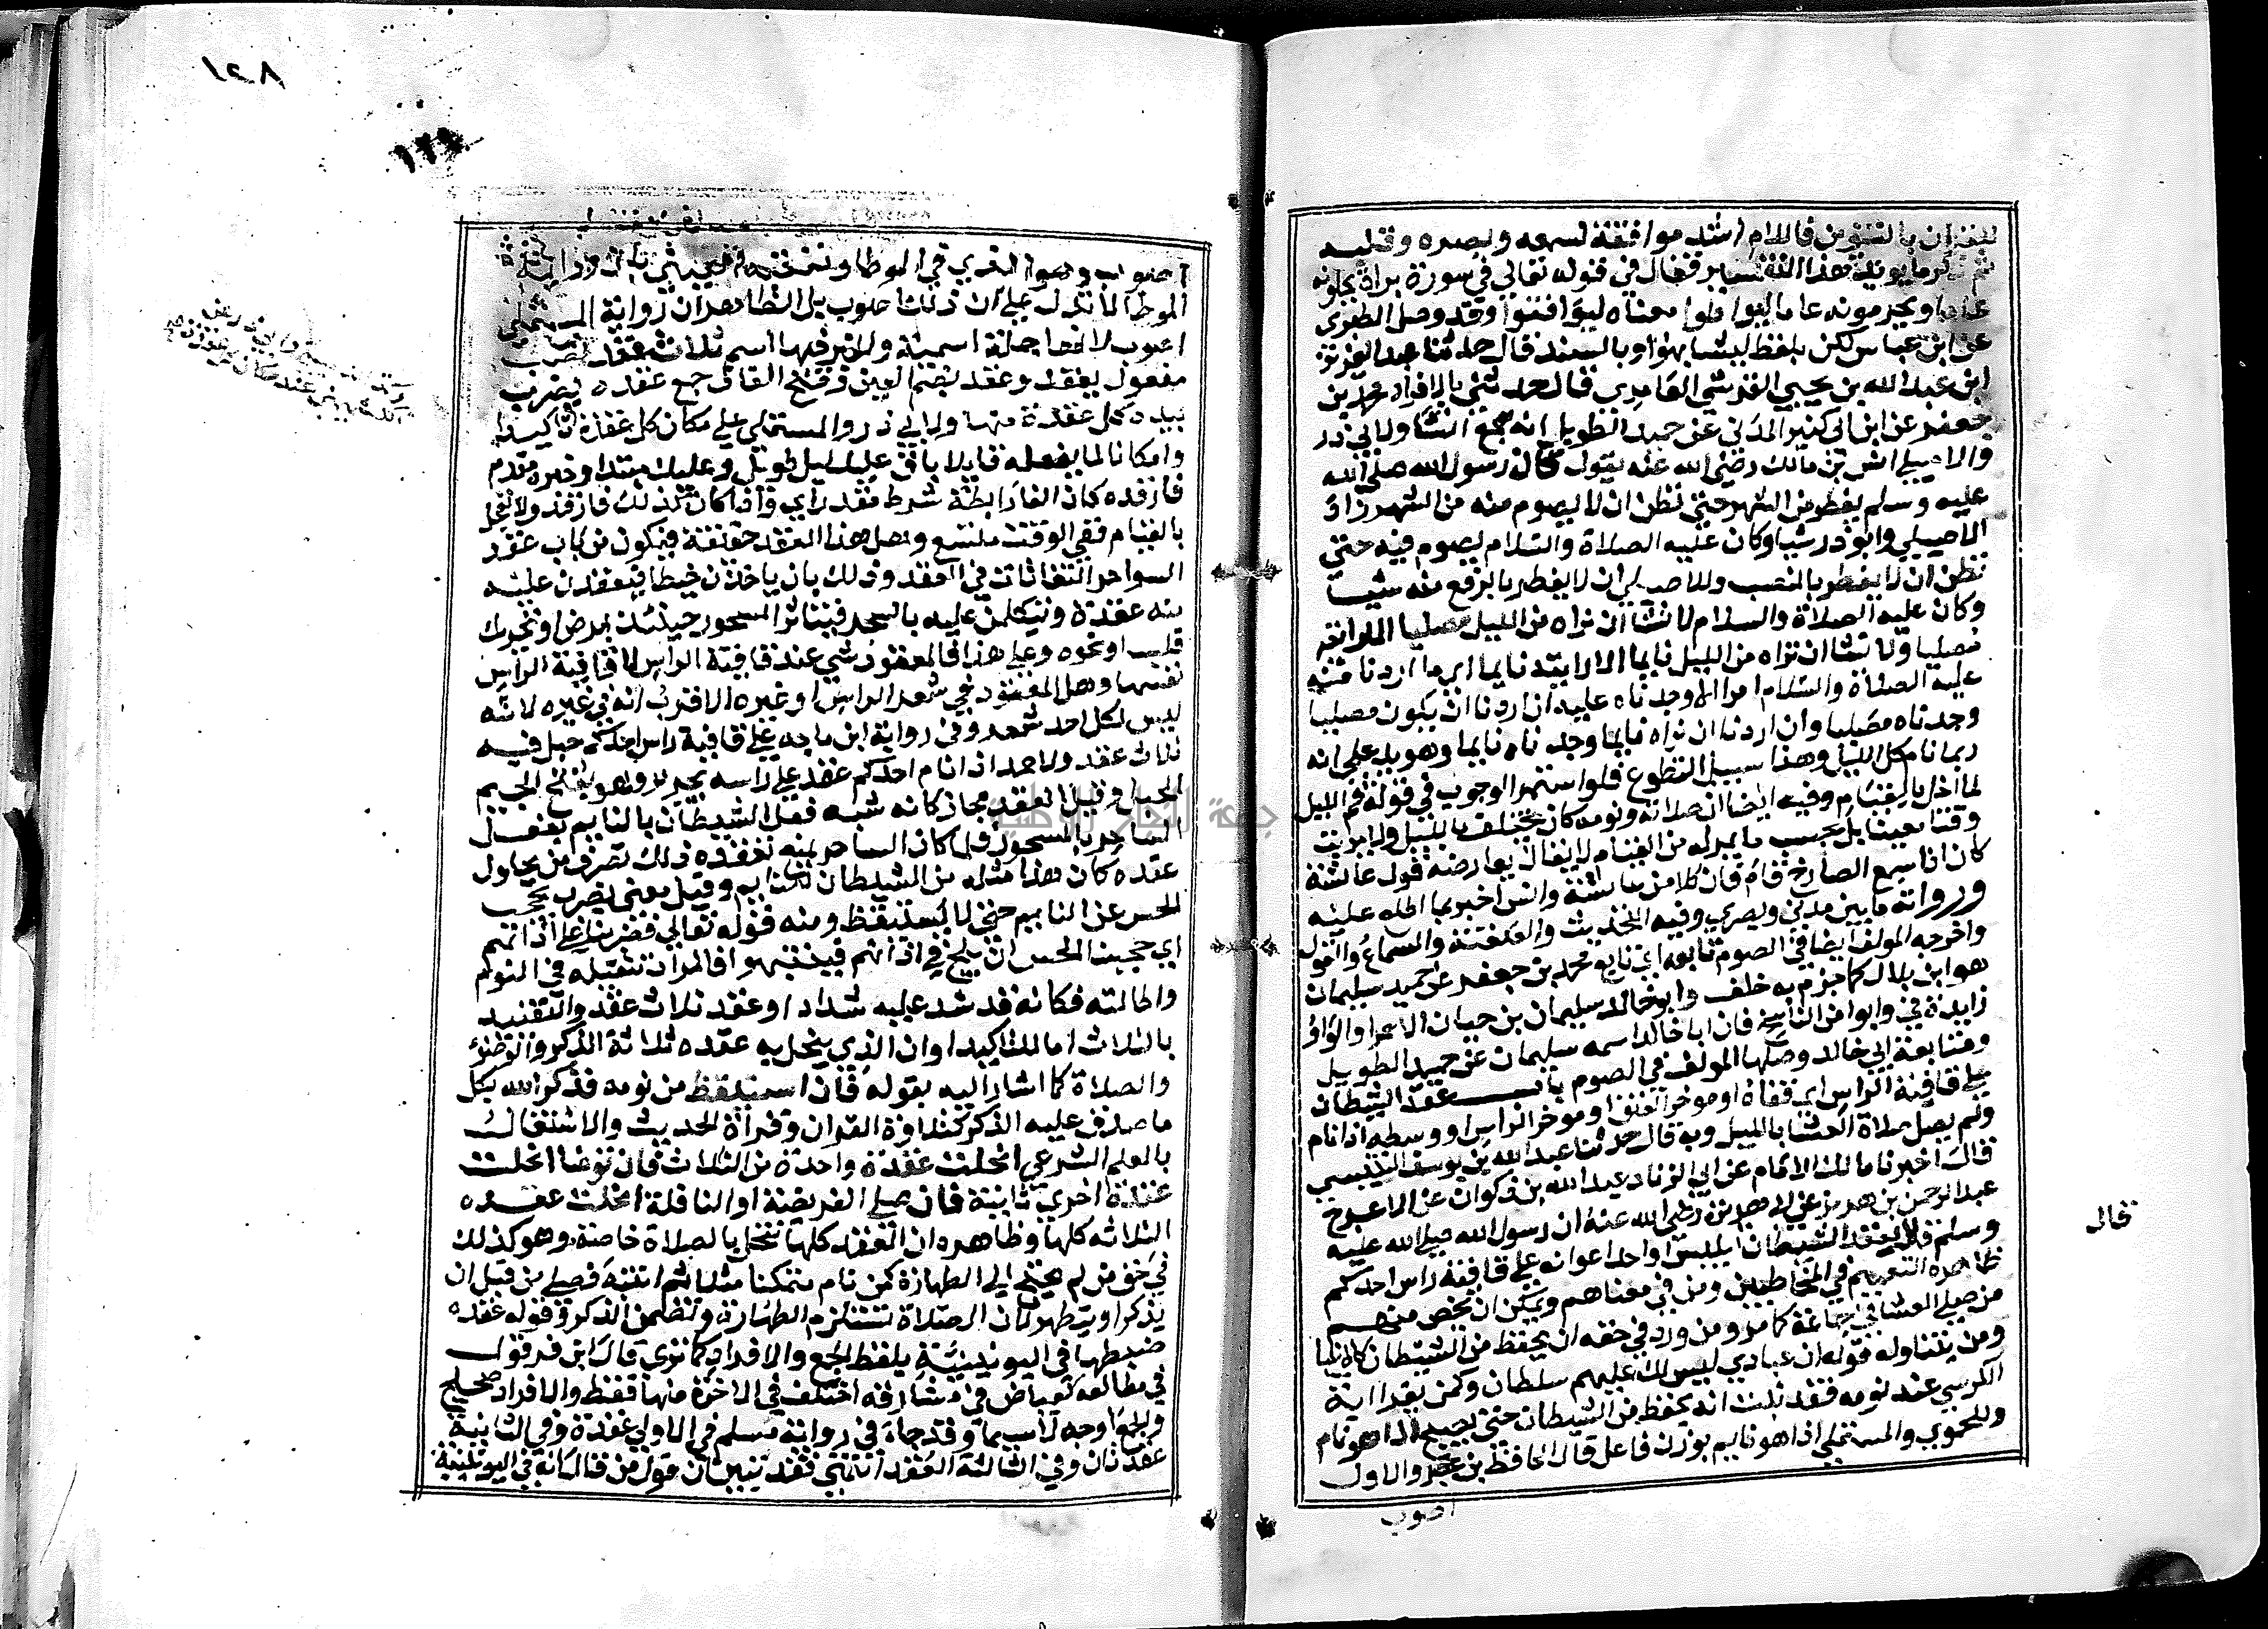 للقران بالتنوين فاللام اشد موافقة لسمعه وبصره وقلبه
ثم ذكر ما يويد هذا التفسير فقال في قوله تعالى في سورة براة يحلونه
عاما ويحرمونه عاما ليواطوا معناه ليوافقوا وقد وصل الطبري
عن ابن عباس لكن بلفظ ليشابهوا وبالسند قال حدثنا عبد العزيز
ابن عبد الله بن يحيي القرشي العامري قال حدثني بالافراد محمد بن
جعفر عن ابن ابي كثير المدني عن حميد الطويل انه سمع انسا ولابي ذر
والاصيلي انس بن مالك رضي الله عنه يقول كان رسول الله صلى الله
عليه وسلم يفطر من الشهر حتى نظن ان لا يصوم منه من الشهر زاد
الاصيلي وابو ذر شيا وكان عليه الصلاة والسلام يصوم فيه حتى
نظن ان لا يفطر بالنصب وللاصيلي ان لا يفطر بالرفع منه شيا
وكان عليه الصلاة والسلام لا تشا ان تراه من الليل مصليا الا رايته
مصليا ولا تشا ان تراه من الليل نايما الا رايته نايما اي ما اردنا منه
عليه الصلاة والسلام امرا الا وجدناه عليه ان اردنا ان يكون مصليا
وجدناه مصليا وان اردنا ان نراه نايما وجدناه نايما وهو يدل على انه
ربما نام كل الليل وهذا سبيل التطوع فلو استمر الوجوب في قوله قم الليل
لما اخل بالقيام وفيه ايضا ان صلاته ونومه كان يختلف بالليل ولا يرتب
وقتا معينا بل بحسب ما يسر له من القيام لا يقال يعارضه قول عائشة
كان اذا سمع الصارخ قام فان كلا من عائشة وانس اخبر بما اطلع عليه
ورواته ما بين مدني وبصري وفيه التحديث والعنعنة والسماع والقول
واخرجه المولف ايضا في الصوم تابعه اي تابع محمد بن جعفر عن حميد سليمان
هو ابن بلال كما جزم به خلف وابو خالد سليمان بن حيان الاحمر او الواو
زايدة في وابو من الناسخ فان ابا خالد اسمه سليمان عن حميد الطويل
ومتابعة ابي خالد وصلها المولف في الصوم باب عقد الشيطان
على قافية الراس اي قفاه او موخر العنق او موخر الراس او وسطه اذا نام
ولم يصل صلاة العشا بالليل وبه قال حدثنا عبد الله بن يوسف التنيسي
قال اخبرنا مالك الامام عن ابي الزناد عبد الله بن ذكوان عن الاعرج
عبد الرحمن بن هرمز عن ابي هريرة رضي الله عنه ان رسول الله صلى الله عليه
وسلم قال يعقد الشيطان ابليس او احد اعوانه على قافية راس احدكم
ظاهره التعميم في المخاطبين ومن في معناهم ويمكن ان يخص منهم
من صلى العشا في جماعة كما مر ومن ورد في حقه ان يحفظ من الشيطان كالانبيا
ومن يتناوله قوله ان عبادي ليس لك عليهم سلطان وكمن يقرا اية
الكرسي عند نومه فقد ثبت انه يحفظ من الشيطان حتى يصبح اذا هو نام
وللحموي والمستملي اذا هو نايم بوزن فاعل قال الحافظ بن حجر والاول
اصوب
تحال
١٤٨
اصوب وهو الذي في الموطا وتعقبه العيني بان رواية
الموطا لا تدل على ان ذلك اصوب بل الظاهر ان رواية المستملي
اصوب لانها جملة اسمية والخبر فيها اسم ثلاث عقد نصب
مفعول يعقد وعقد بضم العين وفتح القاف جمع عقده يضرب
بيده كل عقدة منها ولابي ذر والمستملي على مكان كل عقدة تاكيدا
واحكاما لما يفعله قايلا باق عليك ليل طويل وعليك مبتدا وخبره مقدم
فارقده كان الفا رابطة شرط مقدر اي واذا كان كذلك فارقد ولا تعجل
بالقيام ففي الوقت متسع وهل هذا العقد حقيقة فيكون من باب عقد
السواحر النفاثات في العقد وذلك بان ياخذن خيطا فيعقدن عليه
منه عقدة ويتكلمن عليه بالسحر فيتاثر المسحور حينئذ بمرض او تحريك
قلب او نحوه وعلى هذا فالمعقود شي عند قافية الراس لا قافية الراس
نفسها وهل المعقود في شعر الراس او غيره الاقرب انه في غيره لانه
ليس لكل احد شعر وفي رواية ابن ماجه على قافية راس احدكم حبل فيه
ثلاث عقد ولاحمد اذا نام احدكم عقد على راسه بجرير وهو بفتح الجيم
الحبل وقيل العقد مجاز كانه شبه فعل الشيطان بالنايم بفعل
الساحر بالمسحور فلما كان الساحر يمنع بعقده ذلك تصرف من يحاول
عقده كان هذا مثله من الشيطان للنايم وقيل معنى يضرب يحجب
الحس عن النايم حتى لا يستيقظ ومنه قوله تعالى فضربنا على اذانهم
اي حجبنا الحس ان يلج في اذانهم فينتبهوا فالمراد تثقيله في النوم
واطالته فكانه قد شد عليه شدادا وعقد ثلاث عقد والتقييد
بالثلاث اما للتاكيد او ان الذي ينحل به عقده ثلاثة الذكر والوضوء
والصلاة كما اشار اليه بقوله فان استيقظ من نومه فذكر الله بكل
ما صدق عليه الذكر كتلاوة القران وقراة الحديث والاشتغال
بالعلم الشرعي انحلت عقدة واحدة من الثلاث فان توضا انحلت
عقدة اخرى ثانية فان صلى الفريضة او النافلة انحلت عقده
الثلاثه كلها وظاهره ان العقد كلها تنحل بالصلاة خاصة وهو كذلك
في حق من لم يحتج الى الطهارة كمن نام متمكنا مثلا ثم انتبه فصلى من قبل ان
يذكر او يتطهر لان الصلاة تستلزم الطهارة وتتضمن الذكر وقوله عقده
ضبطها في اليونينية بلفظ الجمع والافراد كما ترى قال ابن قرقول
في مطالعه كعياض في مشارقه اختلف في الاخرة منها فقط والافراد صحيح
والجمع اوجه لاسيما وقد جاء في رواية مسلم في الاولى عقدة وفي الثانية
عقدتان وفي الثالثة العقد انتهى فقد تبين ان قول من قال انه في اليونينية